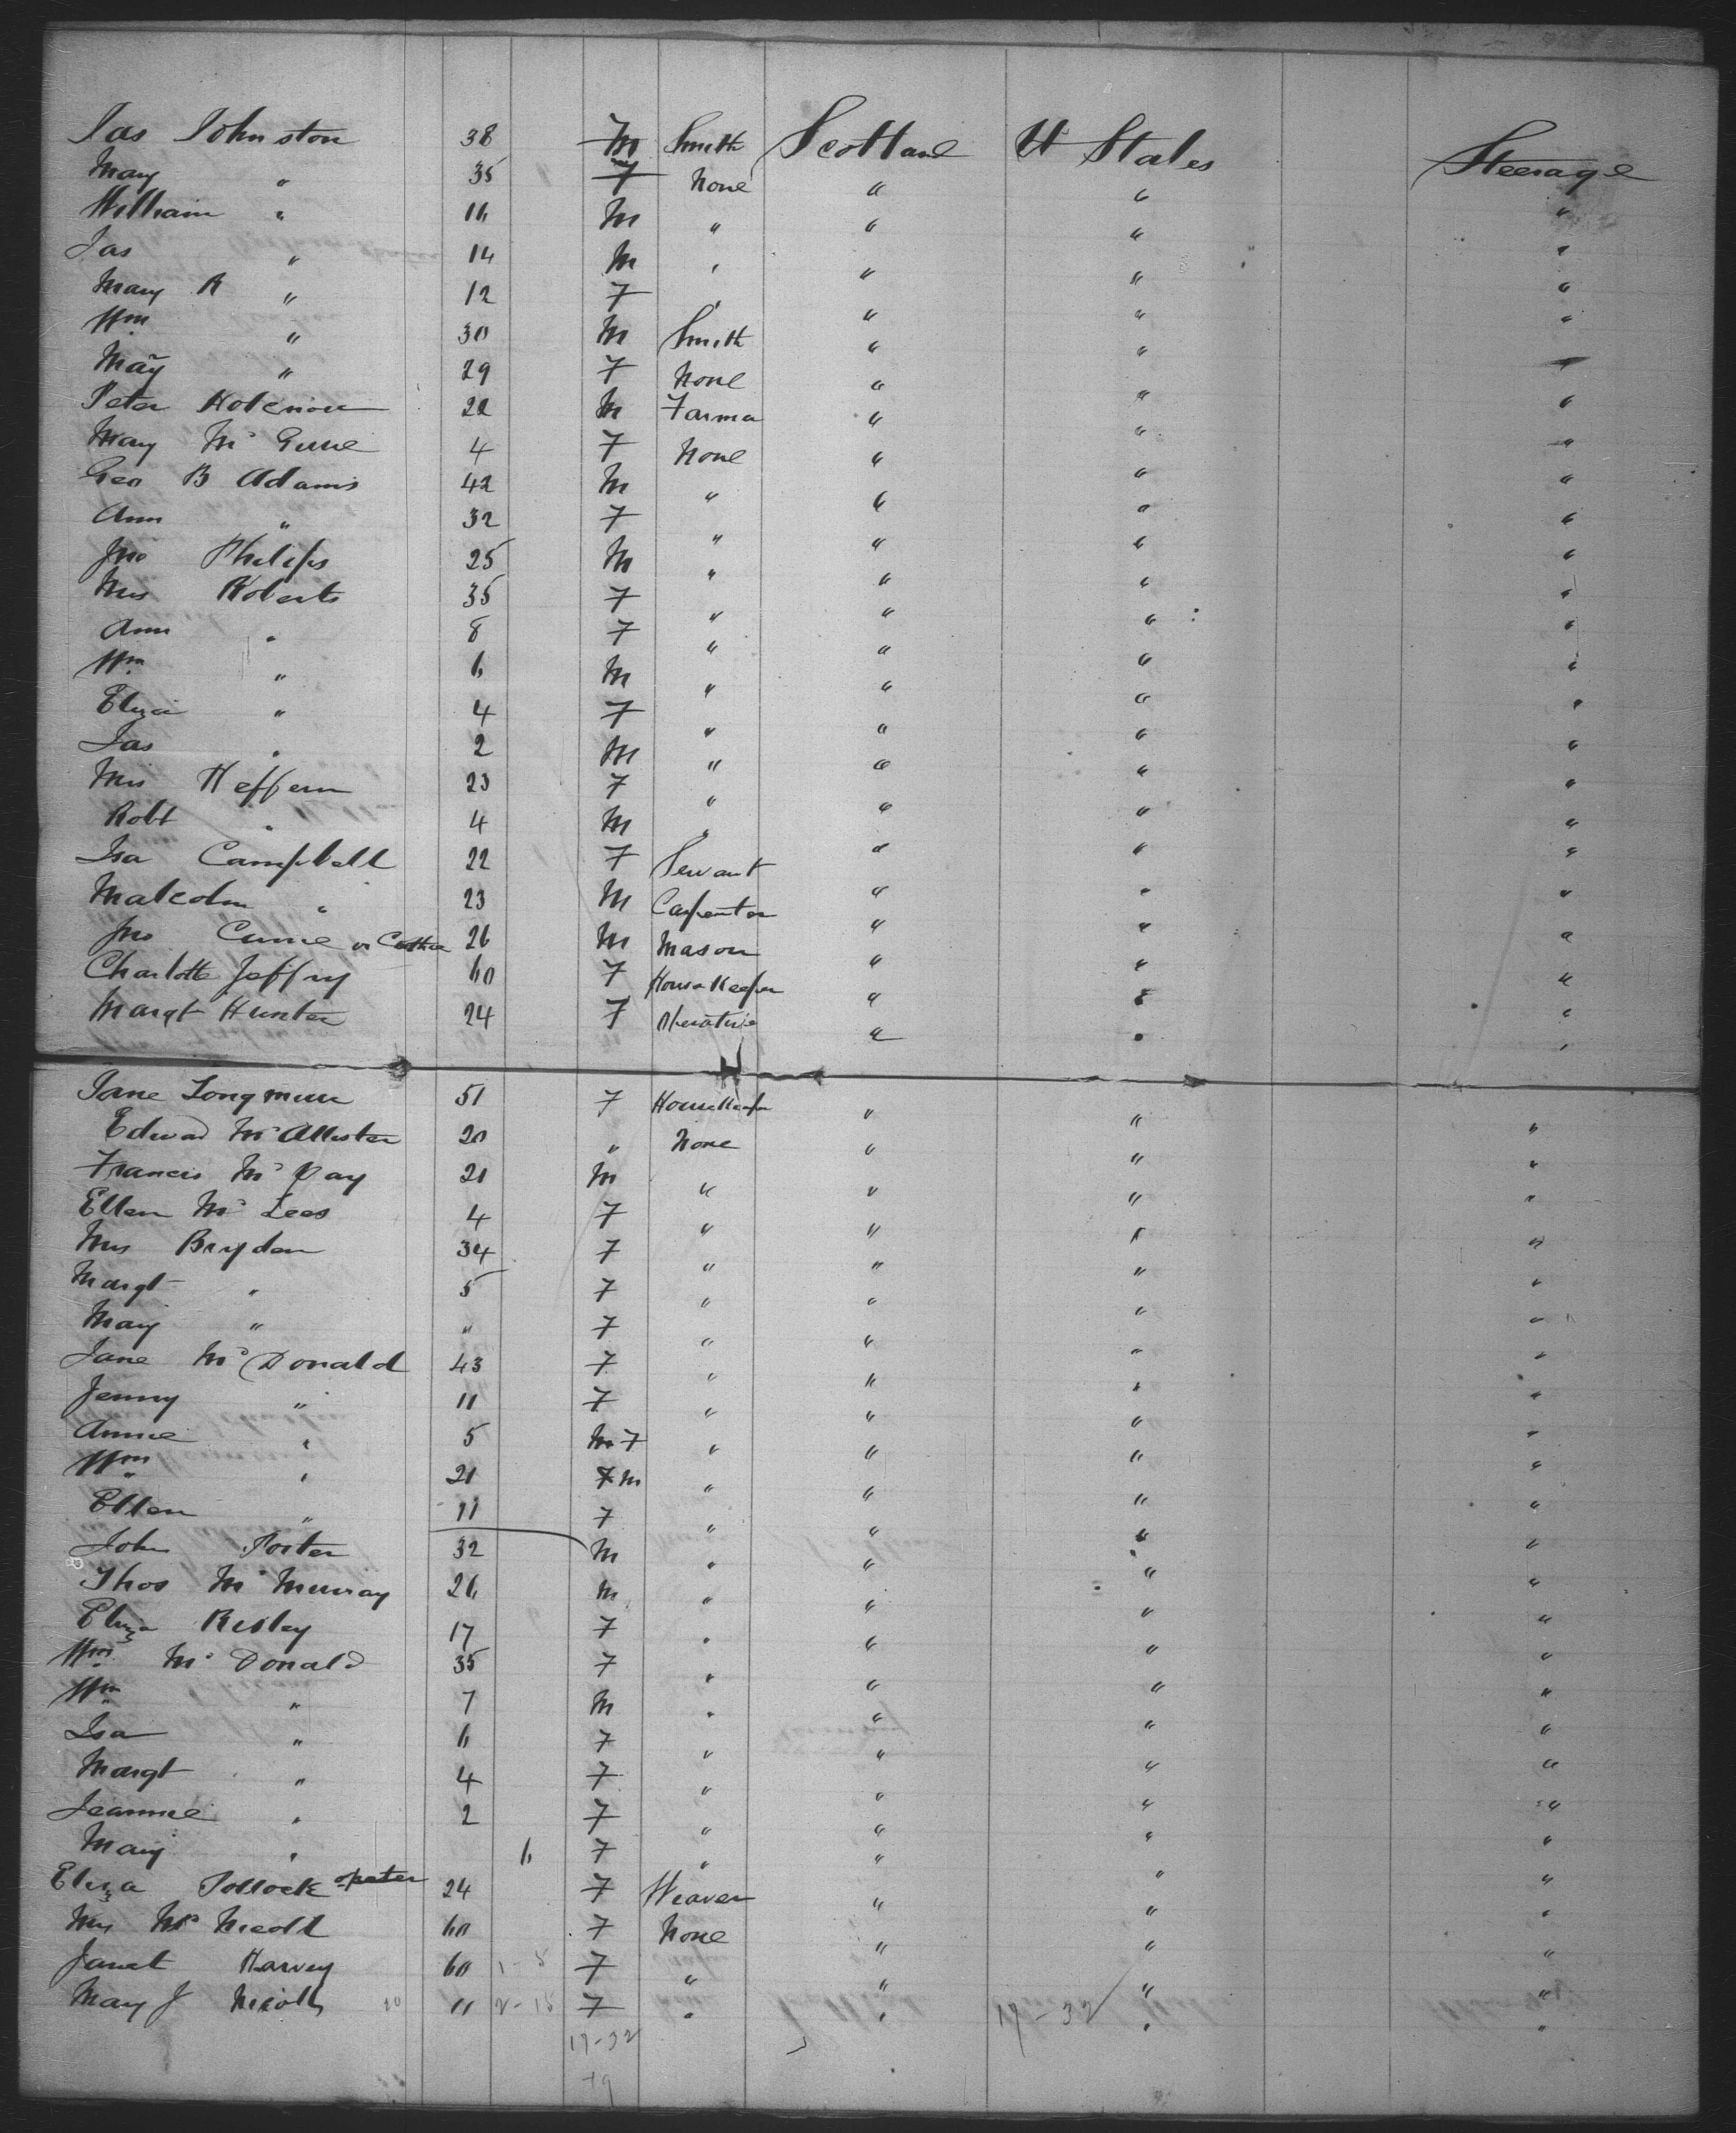 Jas Johnston 38 M Smith Scotland U States Steerage
Mary " 35 F None " " "
William " 16 M " " " "
Jas " 14 M " " " "
Mary R " 12 F " " " "
Wm " 30 M Smith " " "
May " 29 F None " " "
Peter 22 M Farmer " " "
Mary Mc 4 F None " " "
Geo B Adams 42 M " " " "
Ann " 32 F " " " "
Jno Philips 25 M " " " "
Mrs Roberts 35 F " " " "
Ann " 8 F " " " "
Wm " 6 M " " " "
Eliza " 4 F " " " "
Jas " 2 M " " " "
Mrs Heffern 23 F " " " "
Robt " 4 M " " " "
Isa Campbell 22 F Servant " " "
Malcolm " 23 M Carpenter " " "
Jno Currie or 26 M Mason " " "
Charlotte Jeffry 60 F House Keeper " " "
Margt Hunter 24 F Operative " " "
Jane Longmuir 51 F Housekeeper " " "
Edward McAllister 20 " None " " "
Francis Mc Kay 21 M " " " "
Ellen Mc Lees 4 F " " " "
Mrs Bryden 34 F " " " "
Margt " 5 F " " " "
Mary " " F " " " "
Jane McDonald 43 F " " " "
Jenny " 11 F " " " "
Annie " 5 M F " " " "
Wm " 21 F M " " " "
Ellen " 11 F " " " "
John Porter 32 M " " " "
Thos McMurray 26 M " " " "
Eliza Risley 17 F " " " "
Wm McDonald 35 F " " " "
Wm " 7 M " " " "
Isa " 6 F " " " "
Margt " 4 F " " " "
Jeannie " 2 F " " " "
Mary " 6 F " " " "
Eliza Pollock 24 F Weaver " " "
Mrs McNicoll 60 F None " " "
Janet Harvey 60 1-5 F " " " "
Mary J Nicoll 11 2-15 F " " 17-32 " "
17-32